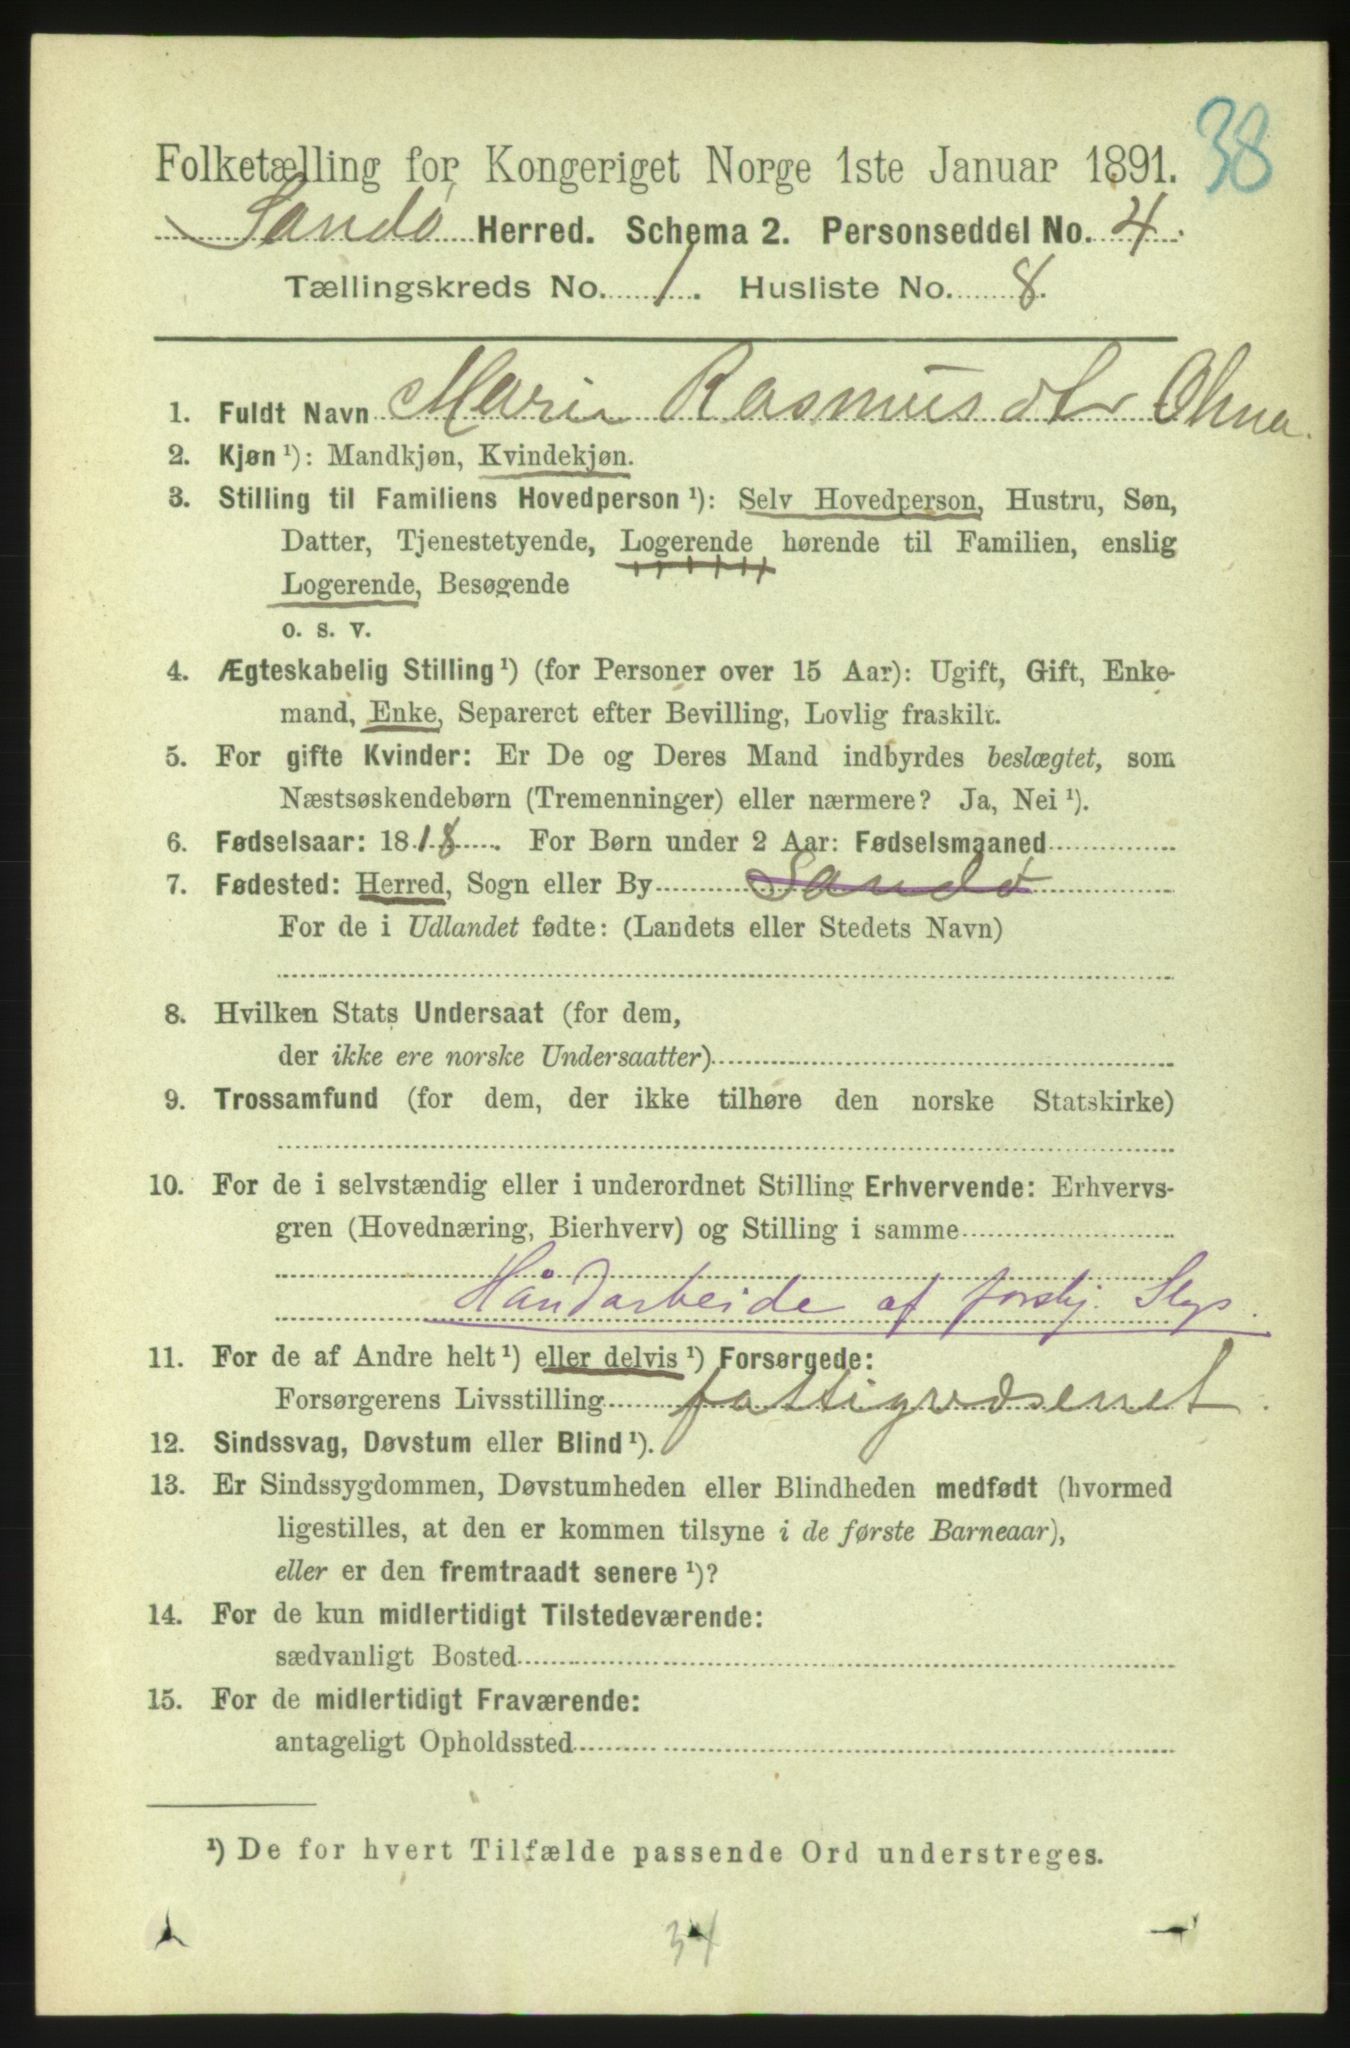 38
Folketælling for Kongeriget Norge 1ste Januar 1891.
Sandø Herred. Schema 2. Personseddel No. 4.
Tællingskreds No. 1. Husliste No. 8.
1. Fuldt Navn Marie Rasmusdtr Ohna.
2. Kjøn ¹): Mandkjøn, Kvindekjøn.
3. Stilling til Familiens Hovedperson ¹): Selv Hovedperson, Hustru, Søn,
Datter, Tjenestetyende, Logerende hørende til Familien, enslig
Logerende, Besøgende
o. s. v.
4. Ægteskabelig Stilling ¹) (for Personer over 15 Aar): Ugift, Gift, Enke-
mand, Enke, Separeret efter Bevilling, Lovlig fraskilt.
5. For gifte Kvinder: Er De og Deres Mand indbyrdes beslægtet, som
Næstsøskendebørn (Tremenninger) eller nærmere? Ja, Nei ¹).
6. Fødselsaar: 1818. For Børn under 2 Aar: Fødselsmaaned
7. Fødested: Herred, Sogn eller By Sandø
For de i Udlandet fødte: (Landets eller Stedets Navn)
8. Hvilken Stats Undersaat (for dem,
der ikke ere norske Undersaatter)
9. Trossamfund (for dem, der ikke tilhøre den norske Statskirke)
10. For de i selvstændig eller i underordnet Stilling Erhvervende: Erhvervs-
gren (Hovednæring, Bierhverv) og Stilling i samme
Håndarbeide af forskj. Slgs.
11. For de af Andre helt ¹) eller delvis ¹) Forsørgede:
Forsørgerens Livsstilling fattigvæsenet.
12. Sindssvag, Døvstum eller Blind ¹).
13. Er Sindssygdommen, Døvstumheden eller Blindheden medfødt (hvormed
ligestilles, at den er kommen tilsyne i de første Barneaar),
eller er den fremtraadt senere ¹)?
14. For de kun midlertidigt Tilstedeværende:
sædvanligt Bosted
15. For de midlertidigt Fraværende:
antageligt Opholdssted
¹) De for hvert Tilfælde passende Ord understreges.
34